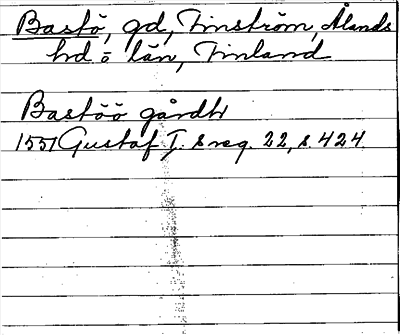 Bastö, gd, Finström, Ålands
hd o län, Finland
Bastöö gårdh
1551 Gustaf I:s reg. 22, s. 424